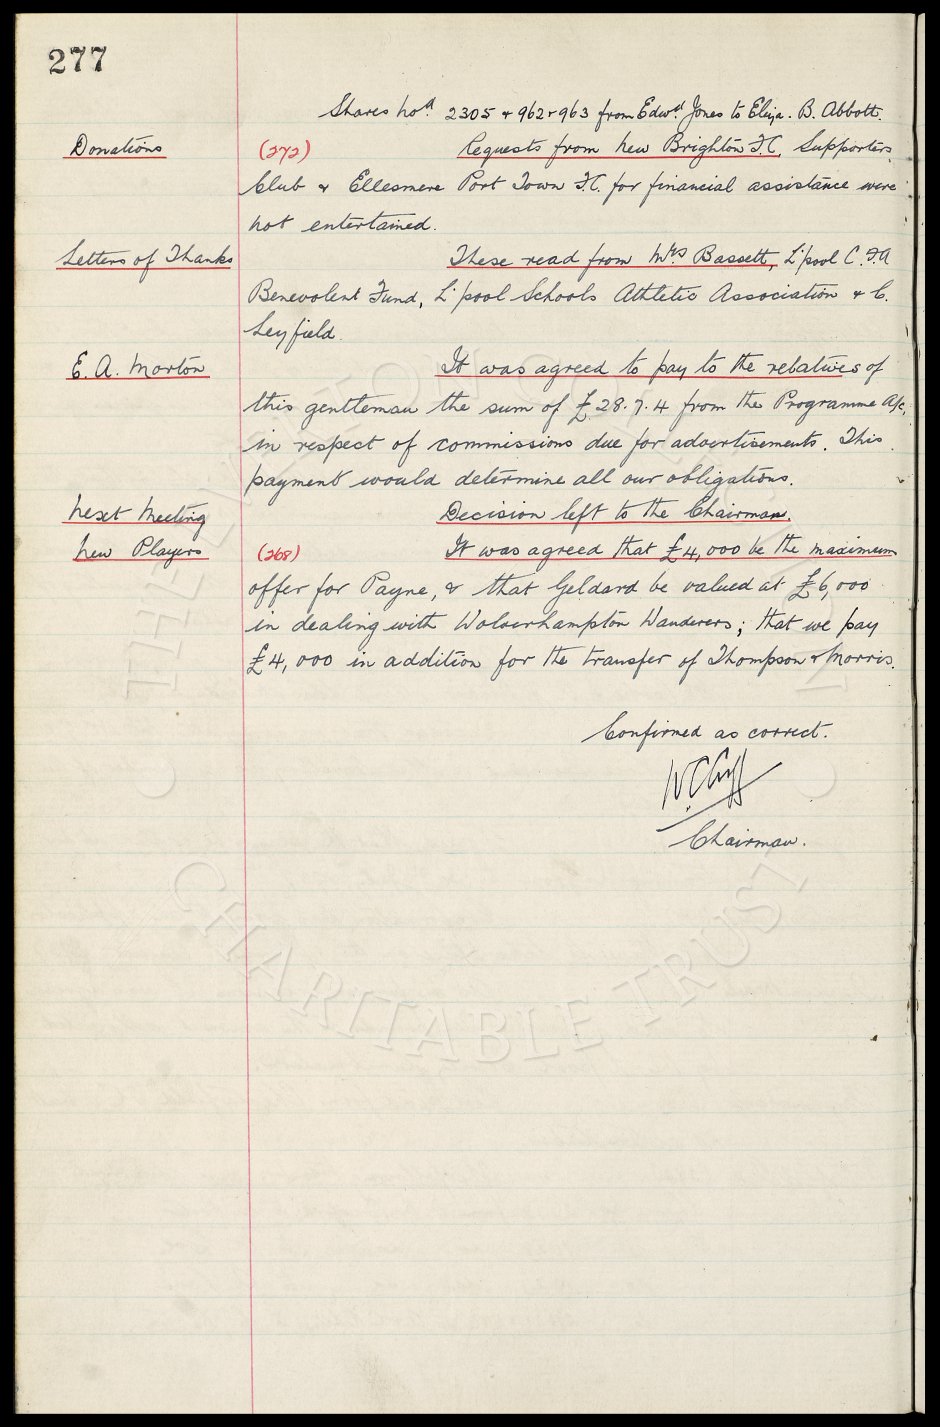 277
Shares Nos 2305 & 962 & 963 from Edwd. Jones to Eliza. B. Abbott.
Donations (272) Requests from New Brighton F.C. Supporters
Club & Ellesmere Port Town F.C. for financial assistance were
not entertained.
Letters of Thanks These read from Mrs Bassett, L'pool C.F.A
Benevolent Fund, L'pool Schools Athletic Association & C.
Leyfield.
E. A. Morton It was agreed to pay to the relatives of
this gentleman the sum of £28.7.4 from the Programme A/c,
in respect of commissions due for advertisements. This
payment would determine all our obligations.
Next Meeting Decision left to the Chairman.
New Players (268) It was agreed that £4,000 be the maximum
offer for Payne, & that Geldard be valued at £6,000
in dealing with Wolverhampton Wanderers; that we pay
£4,000 in addition for the transfer of Thompson & Morris.
Confirmed as correct.
W.C. Cuff
Chairman.
THE EVERTON COLLECTION
CHARITABLE TRUST